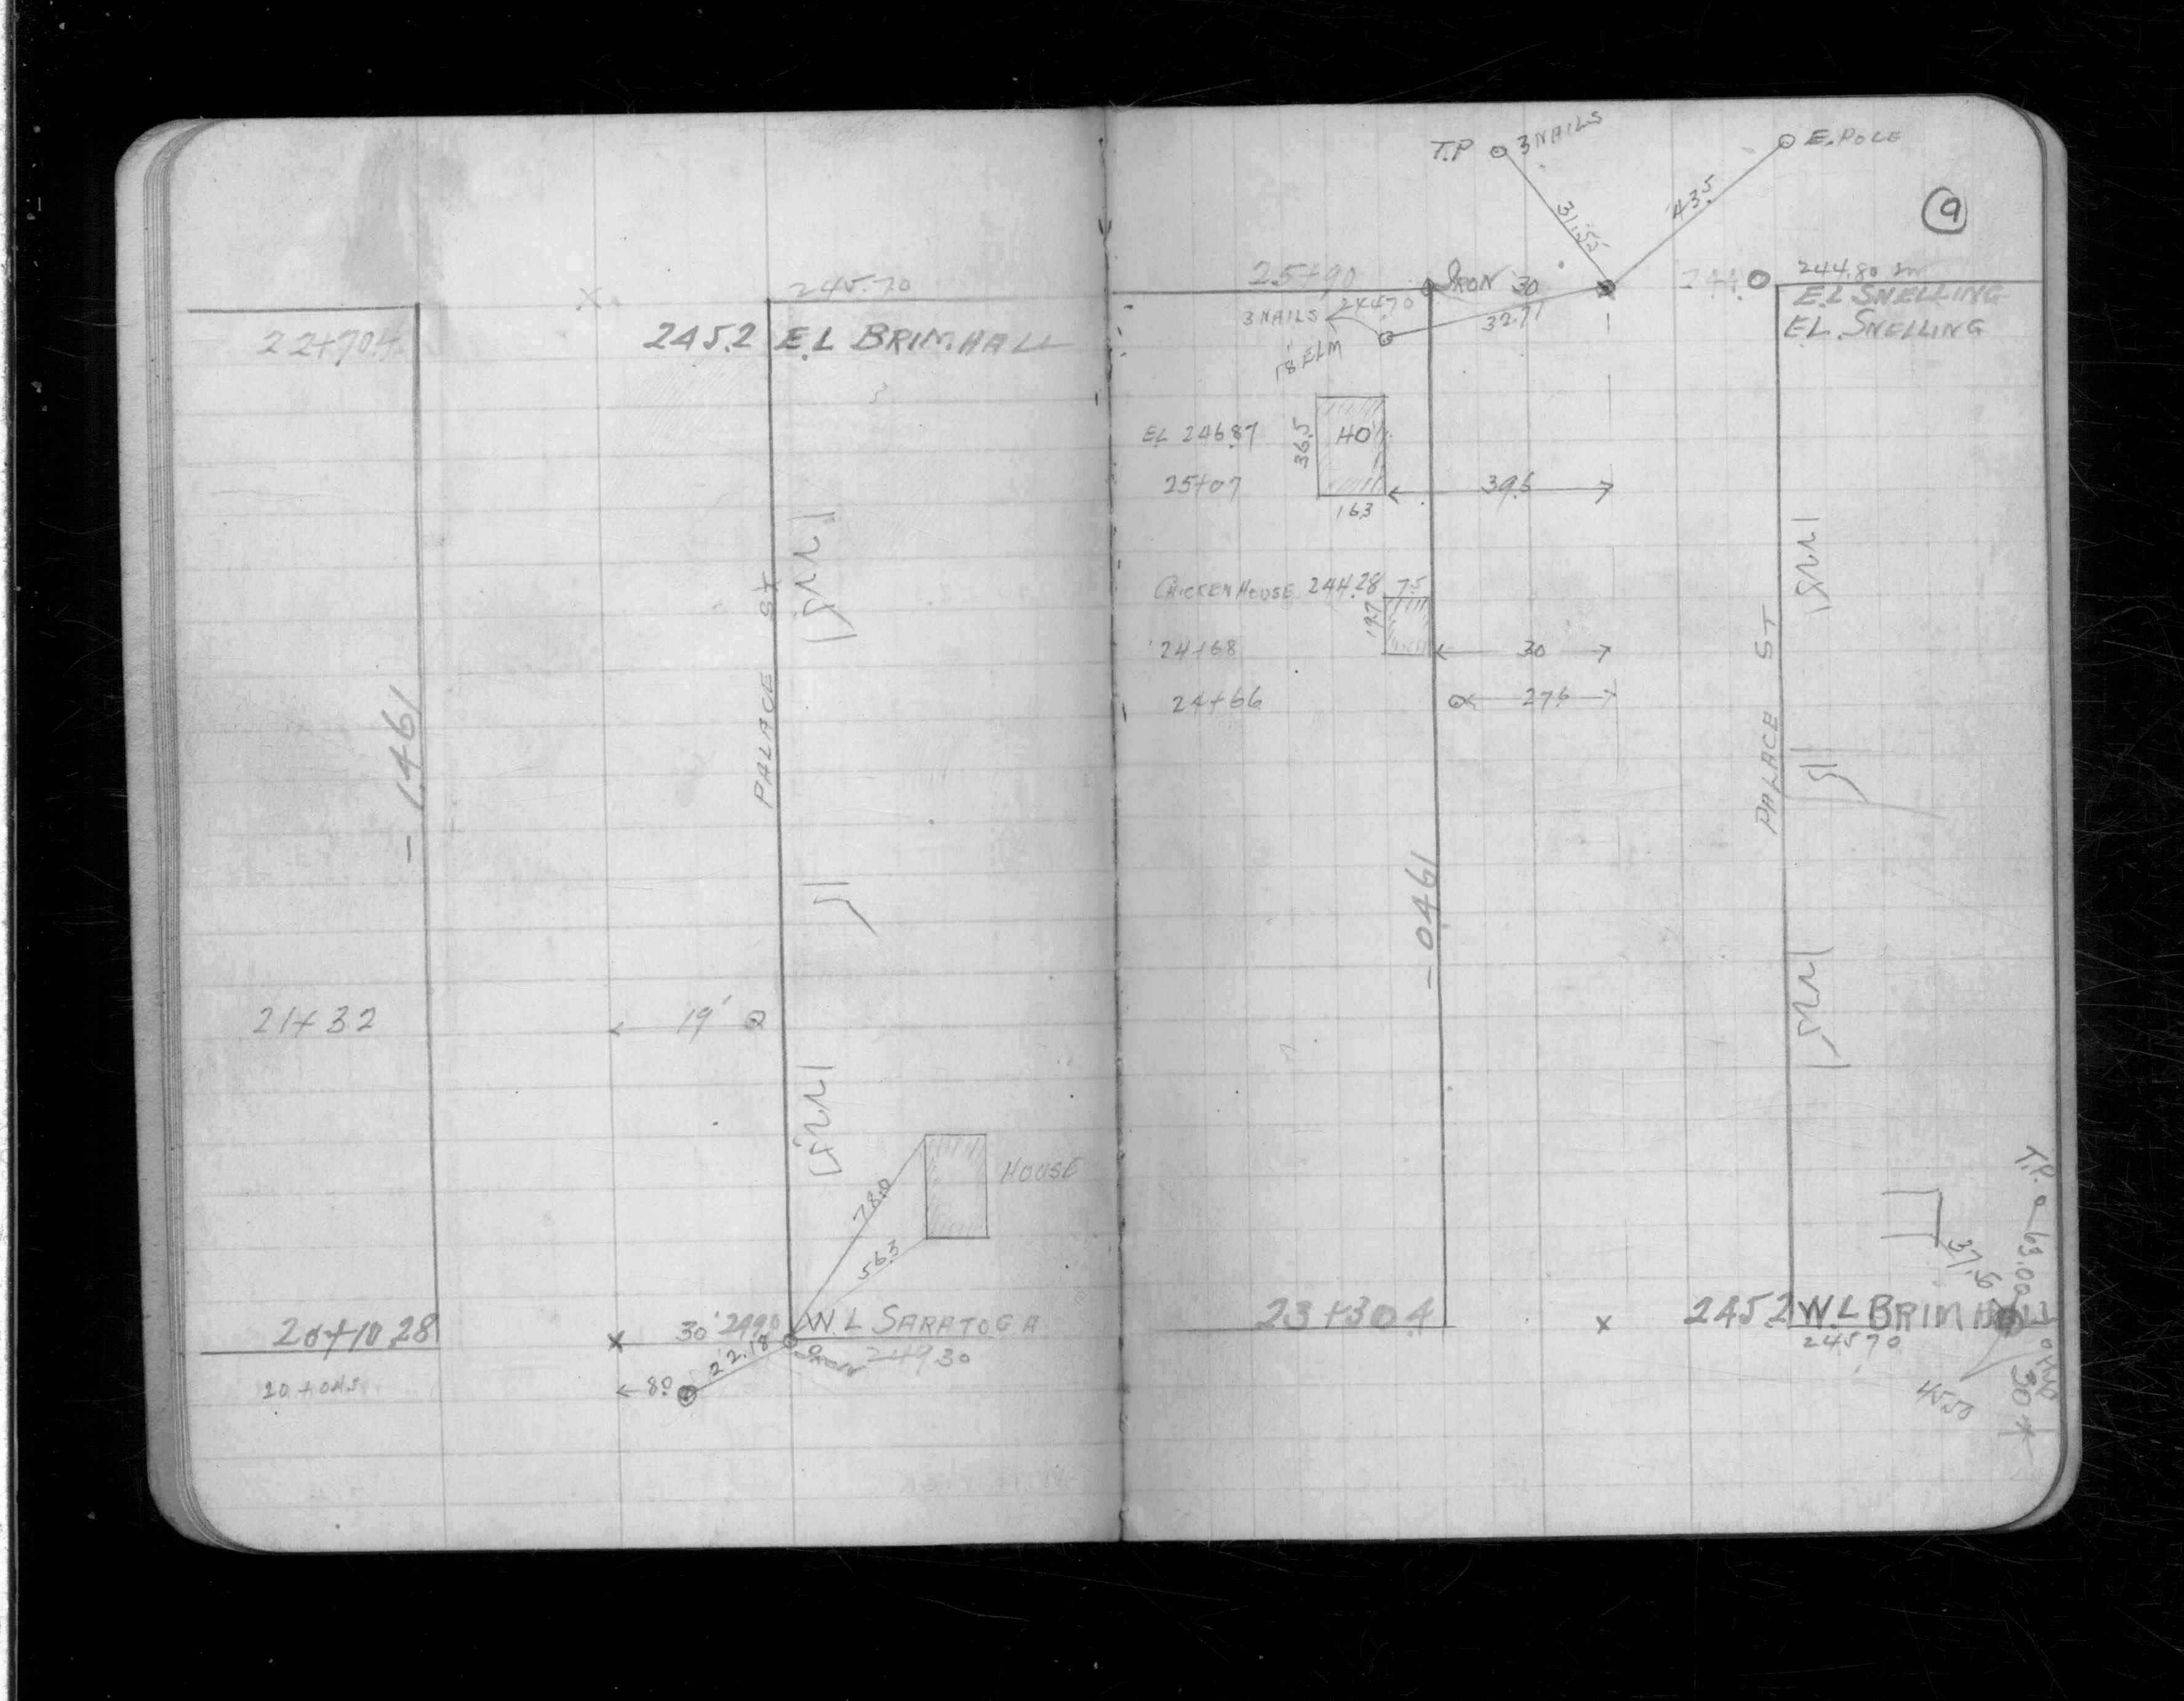 245.70
22+70.4
245.2 E.L BRIMHALL
PALACE ST
- 1.461
21+32
19'
HOUSE
78.0
56.3
20+10.28
30' 249.0
W.L SARATOGA
22.18
Iron 249.30
8.0
T.P 3 NAILS
E.POLE
31.55
43.5
9
25+90
IRON 30
244.0
244.80
E.L SNELLING
3 NAILS
244.70
32.71
E.L. SNELLING
18" ELM
EL 246.87
36.5
HO
25+07
39.6
16.3
CHICKEN HOUSE 244.28 7.5
19.7
24+68
30
24+66
27.6
PALACE ST
- 0.461
T.P.
63.00
37.6
23+30.4
245.2 W.L BRIMHALL
245.70
45.50
30